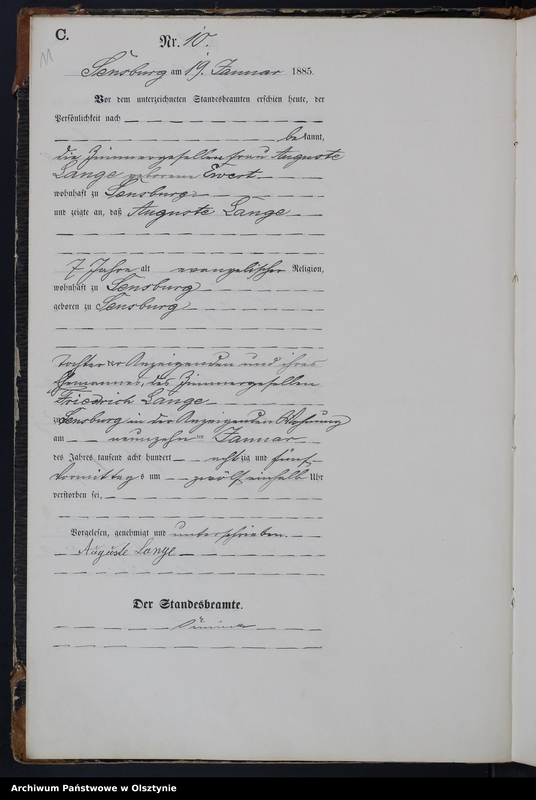 C.
11
Nr. 10.
Sensburg am 19. Januar 1885.
Vor dem unterzeichneten Standesbeamten erschien heute, der
Persönlichkeit nach
bekannt,
die Zimmergesellenfrau Auguste
Lange geborene Ewert
wohnhaft zu Sensburg
und zeigte an, daß Auguste Lange
7 Jahre alt evangelischer Religion,
wohnhaft zu Sensburg
geboren zu Sensburg
Tochter der Anzeigenden und ihres
Ehemannes, des Zimmergesellen
Friedrich Lange
zu Sensburg in der Anzeigenden Wohnung
am neunzehnten Januar
des Jahres tausend acht hundert achtzig und fünf
Vormittags um zwölf einhalb Uhr
verstorben sei,
Vorgelesen, genehmigt und unterschrieben.
Auguste Lange
Der Standesbeamte.
Archiwum Państwowe w Olsztynie